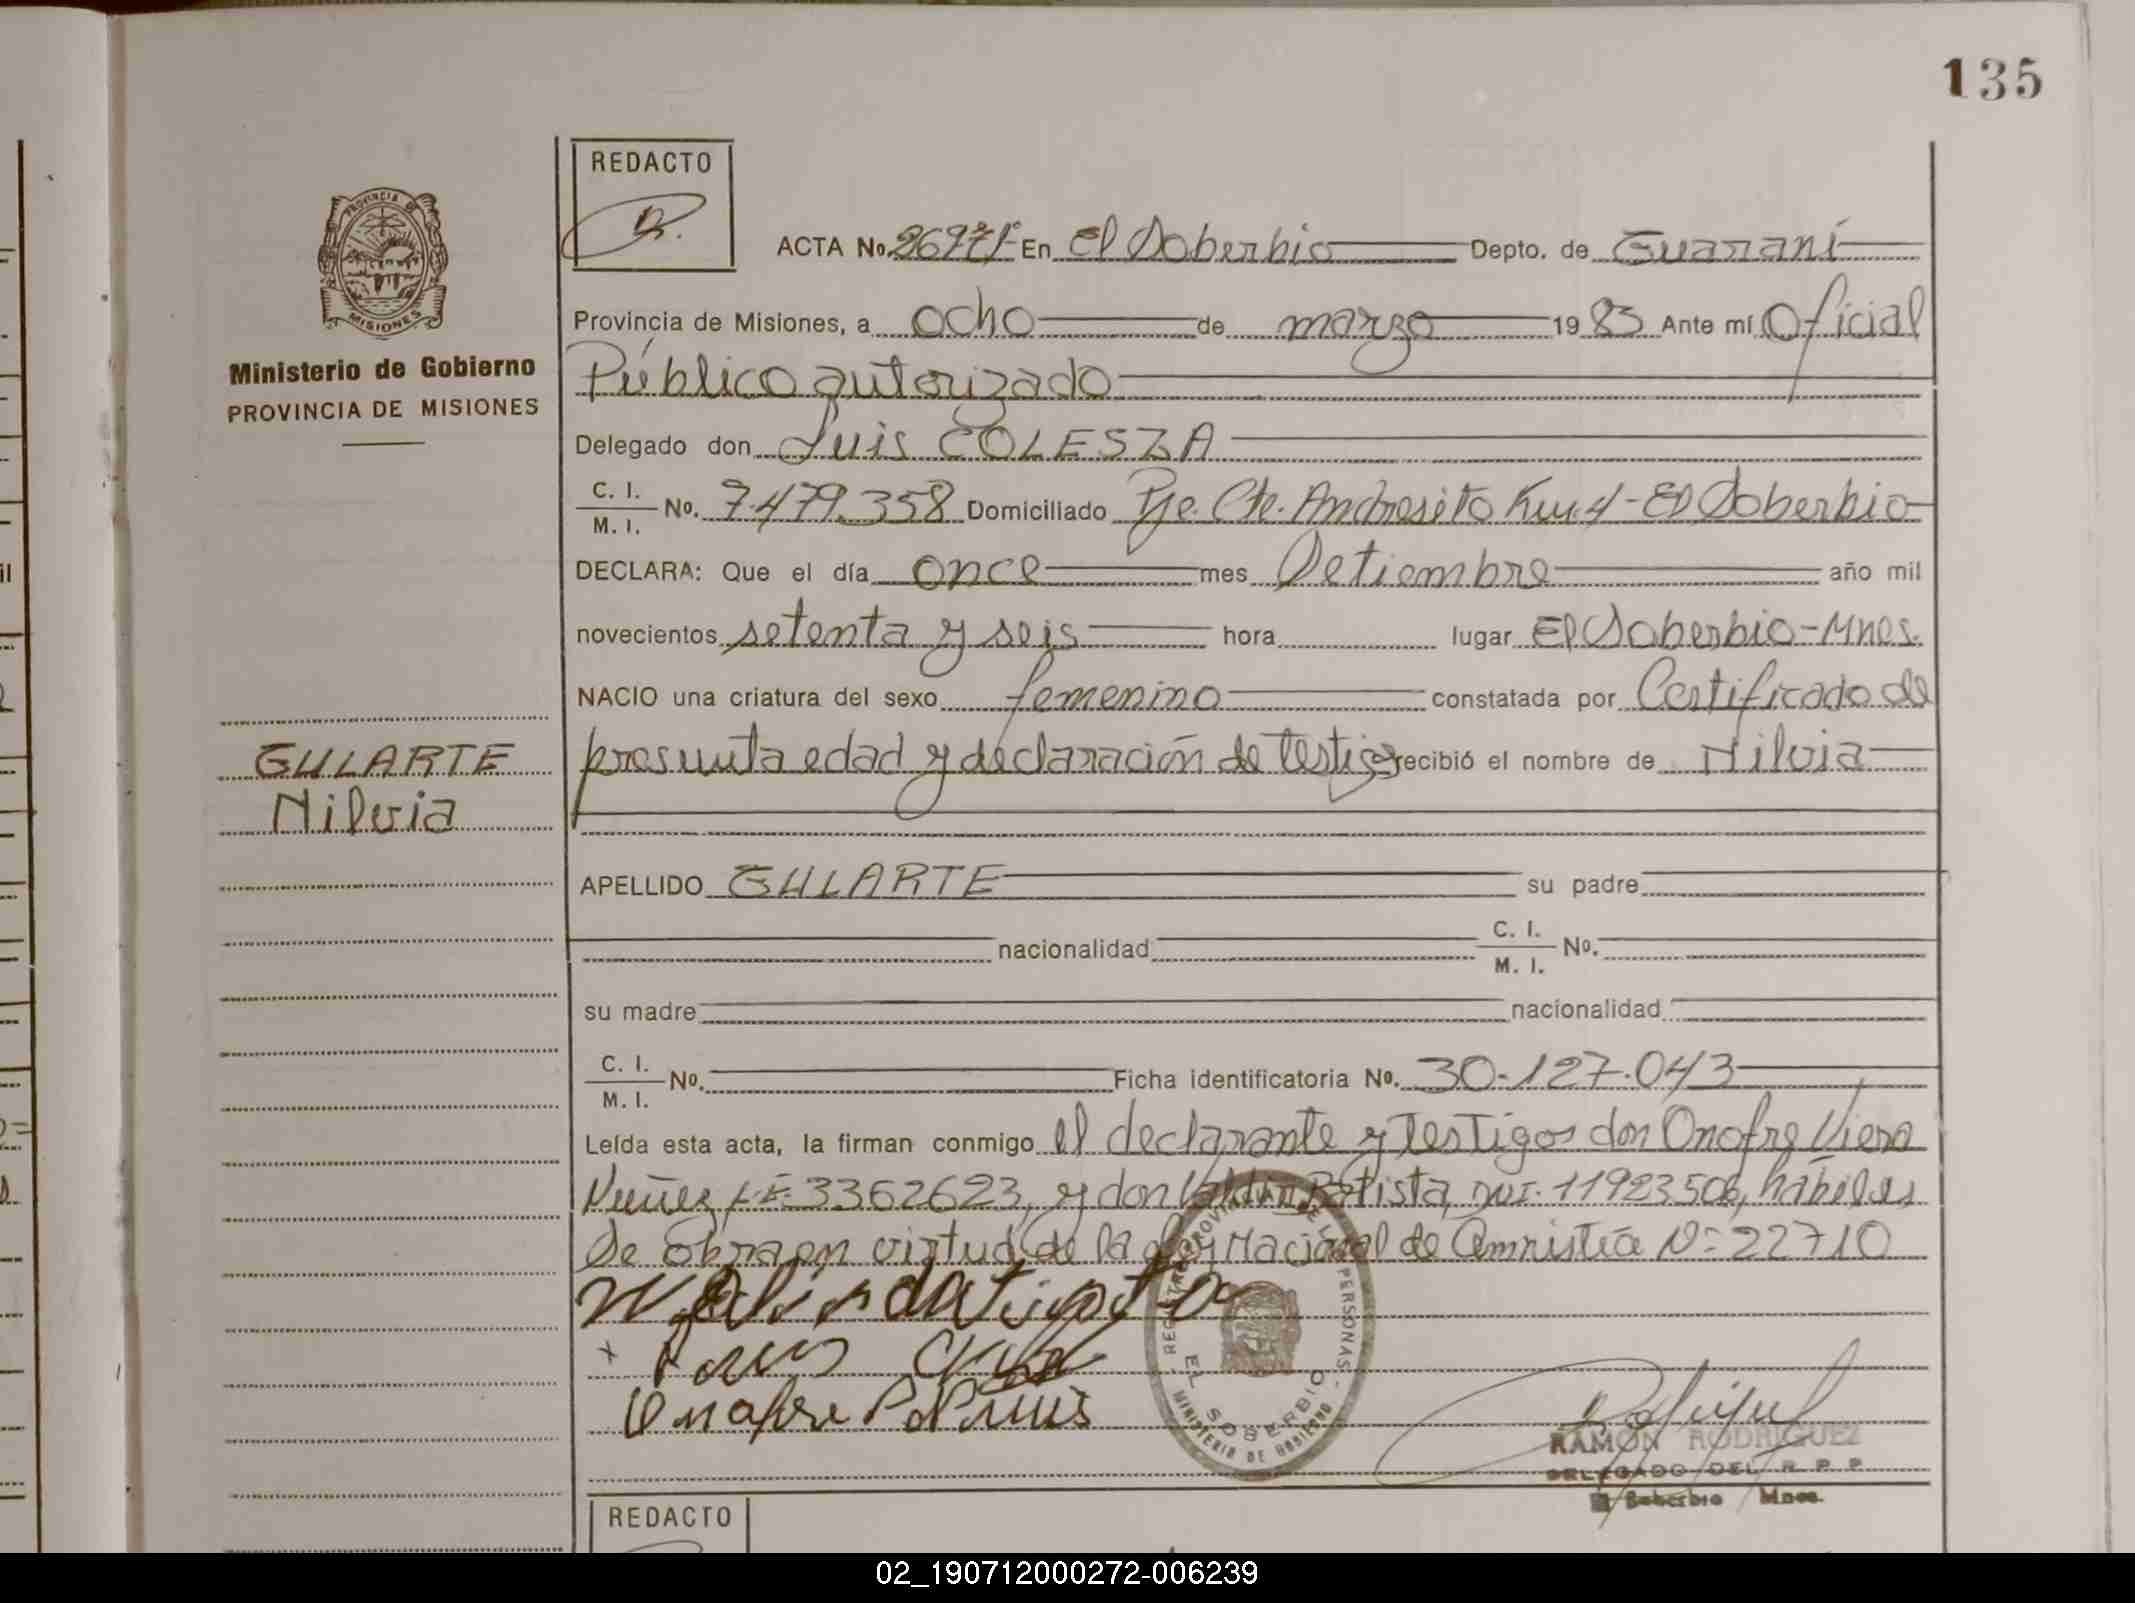 135
REDACTO
ACTA No. En El Soberbio Depto. de Guaraní
Provincia de Misiones, a ocho de marzo 19 83 Ante mí Oficial
Público autorizado
Delegado don Luis COLESZA
C. I. M. I. No. 7.479.358 Domiciliado Pje. Cte. Andresito Km. 4 - El Soberbio
DECLARA: Que el día once mes Setiembre año mil
novecientos setenta y seis hora lugar El Soberbio - Mnes.
NACIO una criatura del sexo femenino constatada por Certificado de
presunta edad y declaración de testigos recibió el nombre de Nilvia
APELLIDO GULARTE su padre
nacionalidad C. I. M. I. No.
su madre nacionalidad
C. I. M. I. No. Ficha identificatoria No. 30.127.043
Leída esta acta, la firman conmigo el declarante y testigos don Onofre Viera
Nuñez L.E. 3362623, y don Batista, DNI. 11923506, hábiles
Se obra en virtud de la Ley Nacional de Amnistía Nº 22710
Ministerio de Gobierno
PROVINCIA DE MISIONES
GULARTE
Nilvia
PROVINCIA DE
MISIONES
REGISTRO PROVINCIAL DE LAS PERSONAS
EL SOBERBIO
MINISTERIO DE GOBIERNO
RAMON RODRIGUEZ
DELEGADO DEL R P P
El Soberbio Mnes.
REDACTO
02_190712000272-006239